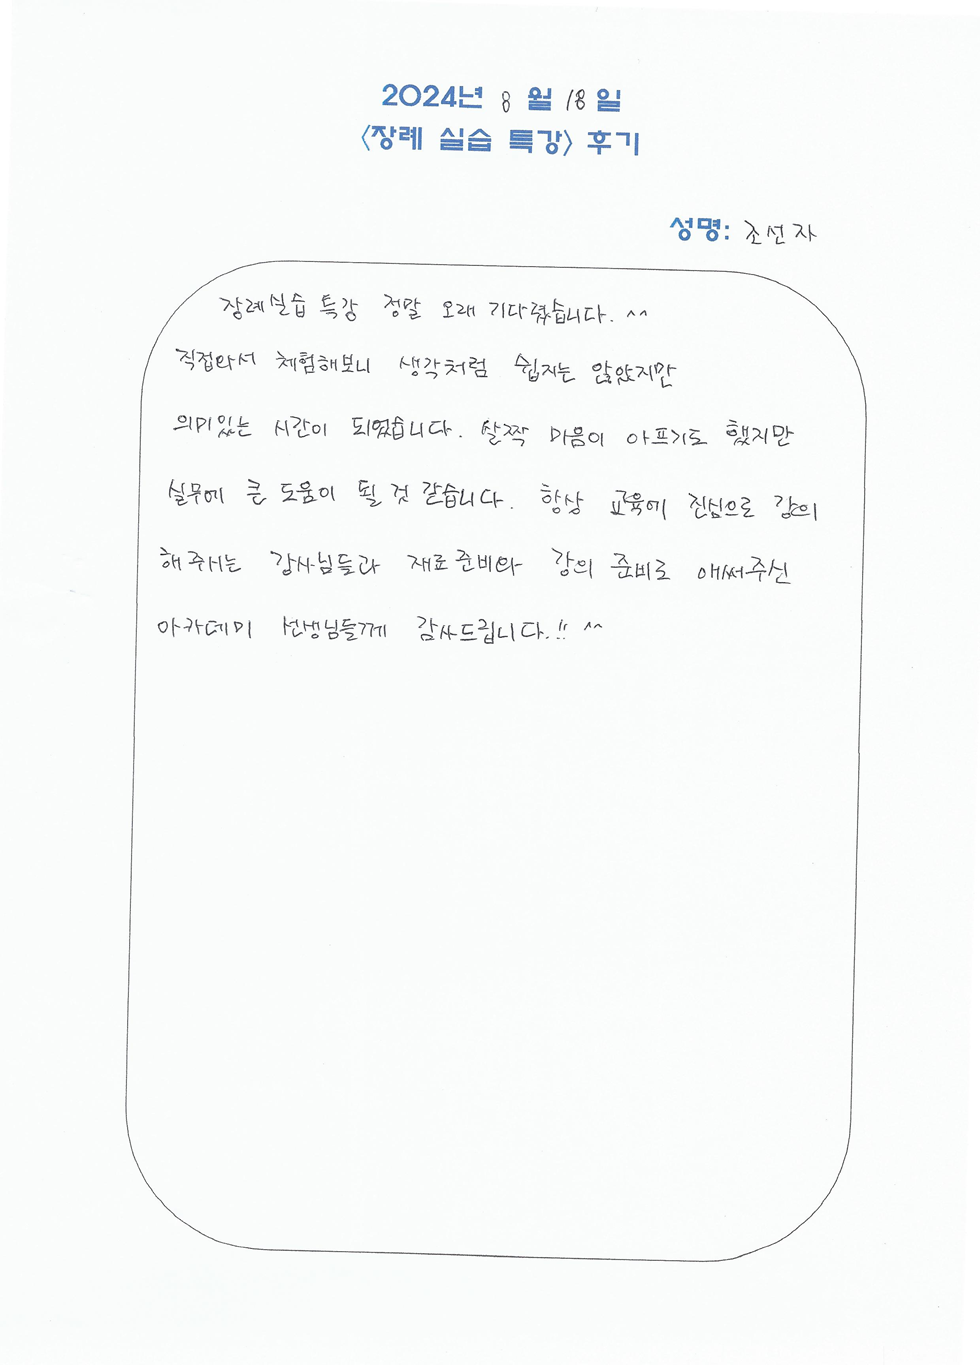 2024년 8 월 18 일
<장례 실습 특강> 후기
성명: 조선자
장례실습 특강 정말 오래 기다렸습니다. ^^
직접와서 체험해보니 생각처럼 쉽지는 않았지만
의미있는 시간이 되었습니다. 살짝 마음이 아프기도 했지만
실무에 큰 도움이 될 것 같습니다. 항상 교육에 진심으로 강의
해주시는 강사님들과 재료준비와 강의 준비로 애써주신
아카데미 선생님들께 감사드립니다.!! ^^